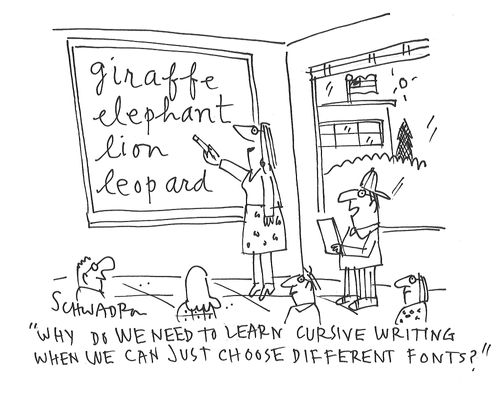 giraffe
elephant
lion
leopard
SCHWADRON
"WHY DO WE NEED TO LEARN CURSIVE WRITING
WHEN WE CAN JUST CHOOSE DIFFERENT FONTS?"